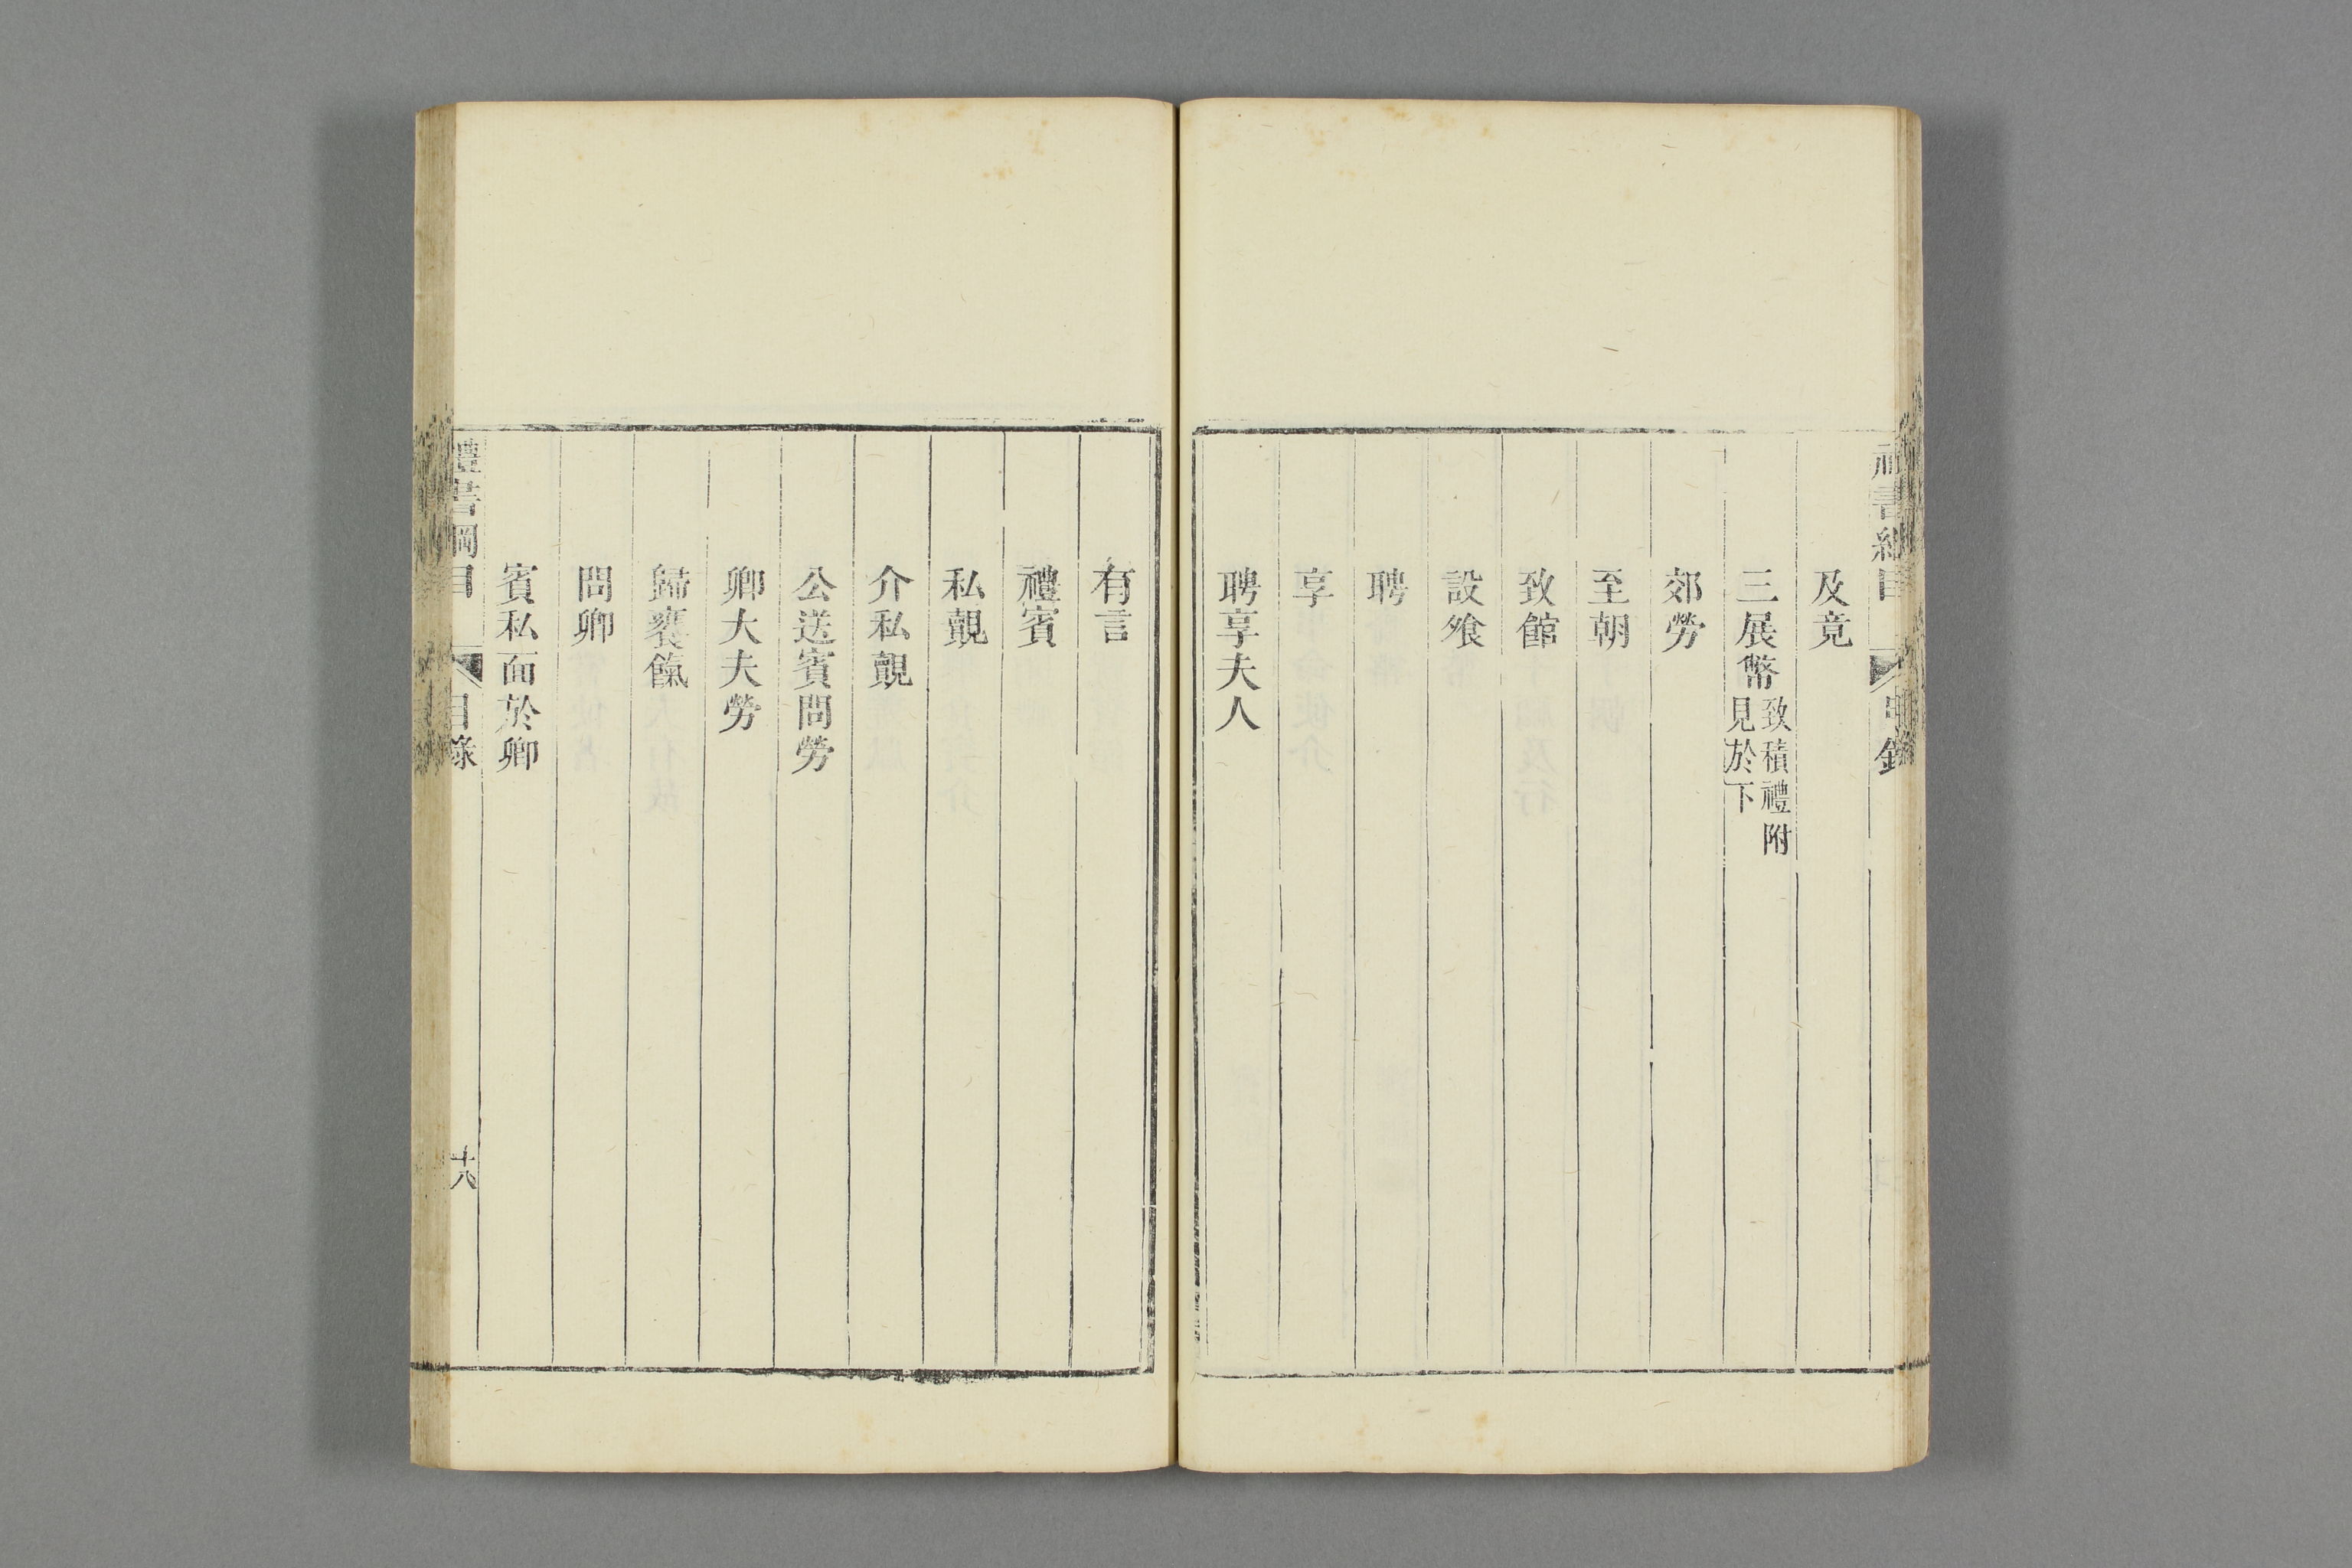 禮書綱目 目錄
及竟
三展幣 致積禮附見於下
郊勞
至朝
致館
設飧
聘
享
聘享夫人
有言
禮賓
私覿
介私覿
公送賓問勞
卿大夫勞
歸饔餼
問卿
賓私面於卿
禮書綱目 目錄 十八